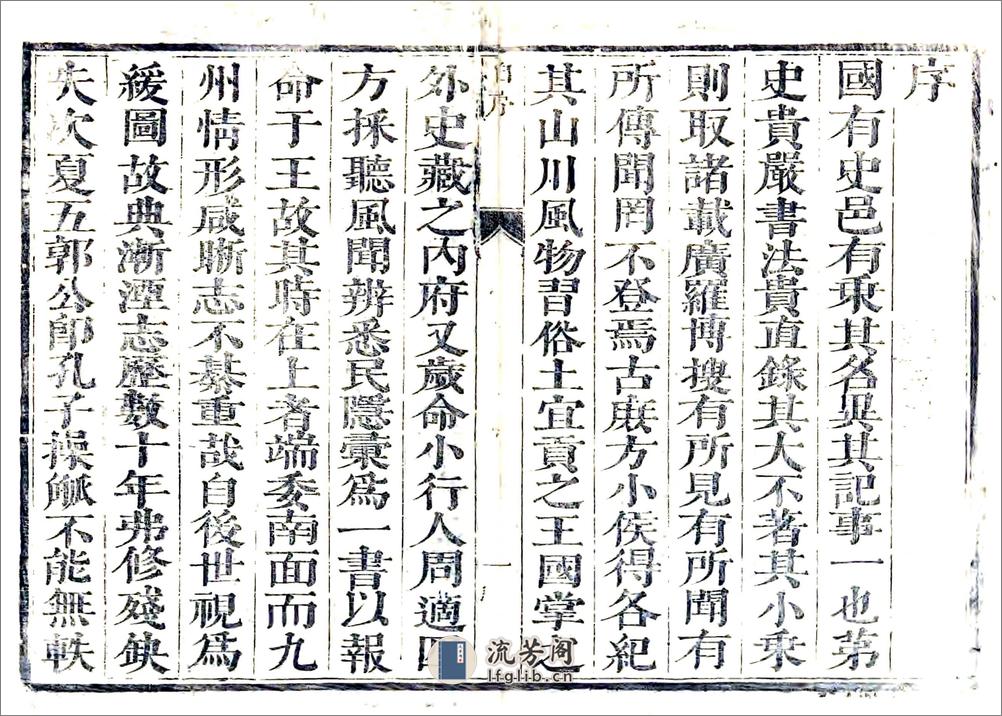 序
國有史邑有乘其名異其記事一也第
史貴嚴書法貴直錄其大不著其小乘
則取諸載廣羅博搜有所見有所聞有
所傳聞罔不登焉古庶方小侯得各紀
其山川風物習俗土宜貢之王國掌之
序
一
外史藏之內府又歲命小行人周適四
方採聽風聞辨悉民隱彙爲一書以報
命于王故其時在上者端委南面而九
州情形咸晣志不綦重哉自後世視爲
緩圖故典漸湮志歷數十年弗修殘缺
失次夏五郭公卽孔子操觚不能無軼
流芳阁
lfglib.cn